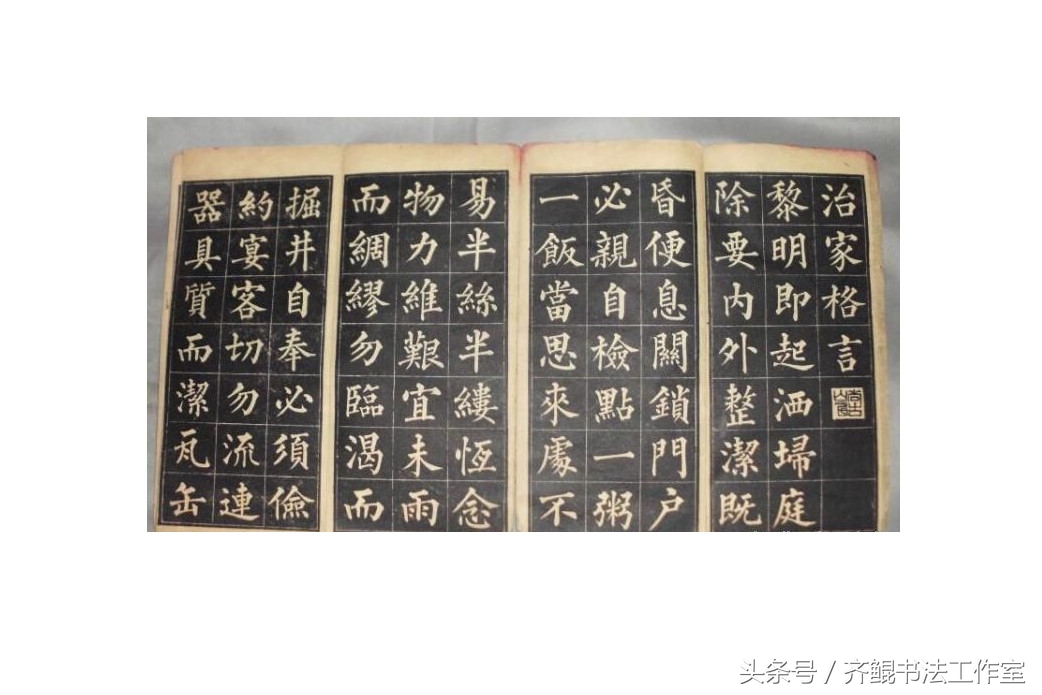 治家格言
黎明即起洒埽庭
除要内外整潔既
昏便息關鎖門户
必親自檢點一粥
一飯當思來處不
易半絲半縷恆念
物力維艱宜未雨
而綢繆勿臨渴而
掘井自奉必須儉
約宴客切勿流連
器具質而潔瓦缶
头条号 / 齐鲲书法工作室